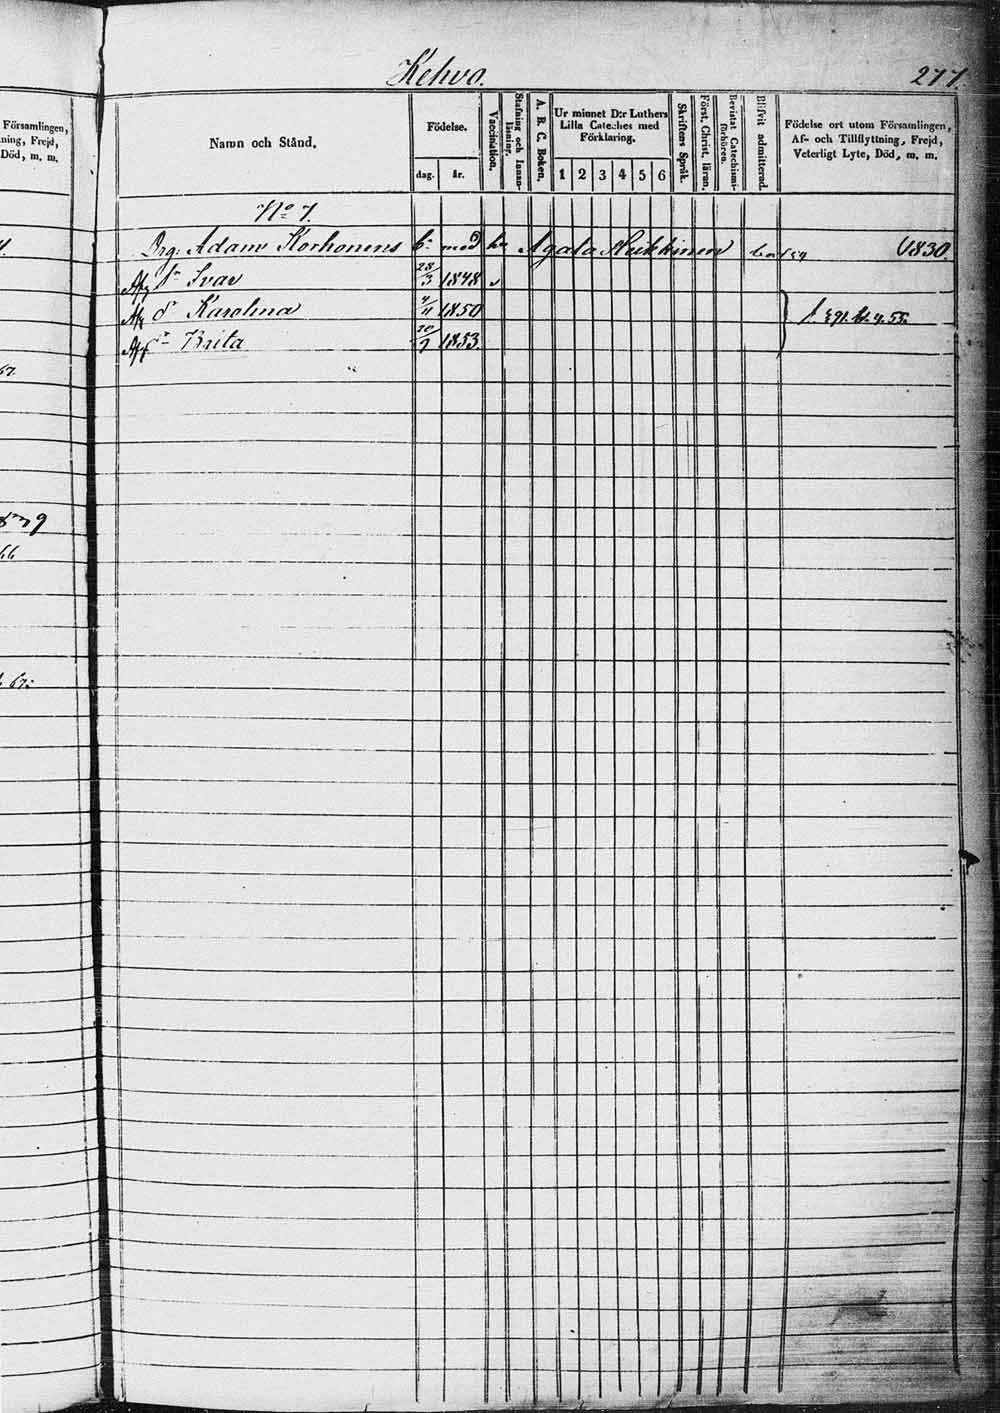 Kehvo.
277.
Församlingen,
ning, Frejd,
Död, m. m.
Namn och Stånd.
Födelse.
dag. år.
Vaccination.
Stafning och Innan-
läsning.
A. B. C. Boken.
Ur minnet D:r Luthers
Lilla Cateches med
Förklaring.
1 2 3 4 5 6
Skriftens Språk.
Först. Christ. läran.
Bevistat Catechismi-
förhören.
Blifvit admitterad.
Födelse ort utom Församlingen,
Af- och Tillflyttning, Frejd,
Veterligt Lyte, Död, m. m.
No 7.
Drg: Adam Korhonens b: med Agata Heikkinen 1830
Ivar 28/3 1848
d Karolina 4/11 1850
Brita 20/7 1853
67: